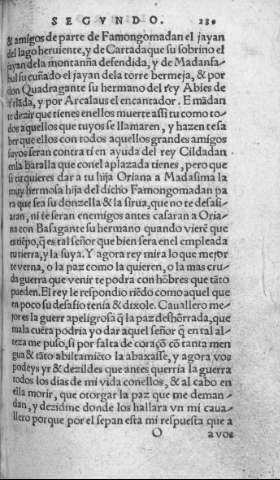 SEGVNDO. 280
& amigos de parte de Famongomadan el jayan
del lago heruiente, y de Cartadaque su sobrino el
jayan dela montanña defendida, y de Madanfa-
bul su cuñado el jayan dela torre bermeja, & por
don Quadragante su hermano del rey Abies de
Yrlāda, y por Arcalaus el encantador. E mādan
te dezir que tienes enellos muerte assi tu como to-
dos aquellos que tuyos se llamaren, y hazen te sa
ber que ellos con todos aquellos grandes amigos
suyos seran contra ti en ayuda del rey Cildadan
enla batalla que conel aplazada tienes, pero que
si tu quieres dar a tu hija Oriana a Madasima la
muy hermosa hija del dicho Famongomadan pa
ra que sea su donzella & la sirua, que no te desafi-
aran, ni te seran enemigos antes casaran a Oria-
na con Basagante su hermano quando vierē que
es tiēpo, q̄ es tal señor que bien sera enel empleada
tu tierra, y la suya. Y agora rey mira lo que mejor
te verna, o la paz como la quieren, o la mas cru-
da guerra que venir te podra con hōbres que tāto
pueden. El rey le respondio riēdo como aquel que
en poco su desafio tenia & dixole. Cauallero me-
jor es la guerr apeligrosa q̄ la paz deshōrrada, que
mala cuēta podria yo dar aquel señor q̄ en tal al-
teza me puso, si por falta de coraçō cō tanta men
gua & tāto abiltamiēto la abaxasse, y agora vos
podeys yr & dezildes que antes querria la guerra
todos los dias de mi vida conellos, & al cabo en
ella morir, que otorgar la paz que me deman-
dan, y dezidme donde los hallara vn mi caua-
llero porque por el sepan esta mi respuesta que a
O a vos